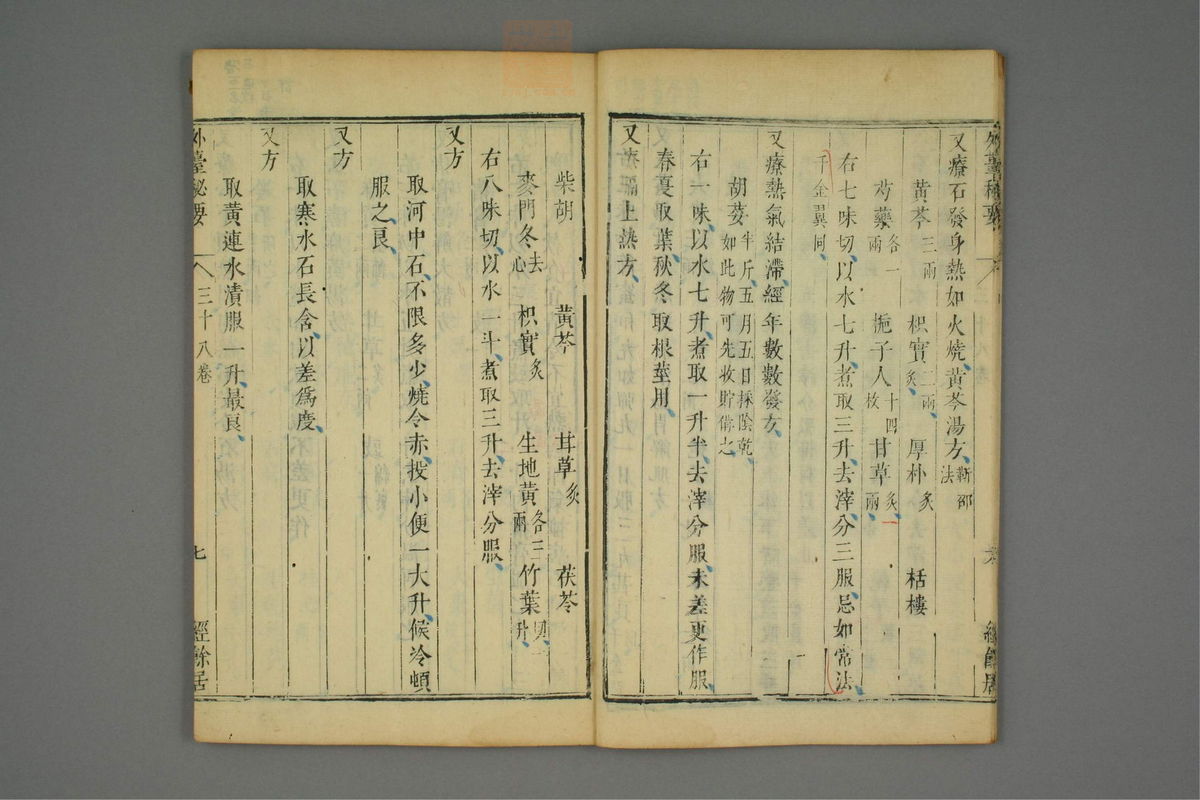 外臺秘要
又療石發身熱如火燒黃芩湯方靳邵法
黃芩三兩 枳實二兩炙 厚朴炙 栝樓
芍藥各一兩 梔子人十四枚 甘草一兩炙
右七味切以水七升煮取三升去滓分三服忌如常法
千金翼同
又療熱氣結滯經年數數發方
胡荽半斤五月五日採陰乾如此物可先收貯備之
右一味以水七升煮取一升半去滓分服未差更作服
春夏取葉秋冬取根莖用
又療膈上熱方
柴胡 黃芩 甘草炙 茯苓
麥門冬去心 枳實炙 生地黃各三兩 竹葉切一升
右八味切以水一斗煮取三升去滓分服
又方
取河中石不限多少燒令赤投小便一大升候冷頓
服之良
又方
取寒水石長含以差爲度
又方
取黃連水漬服一升最良
外臺秘要 三十八卷 七 經餘居